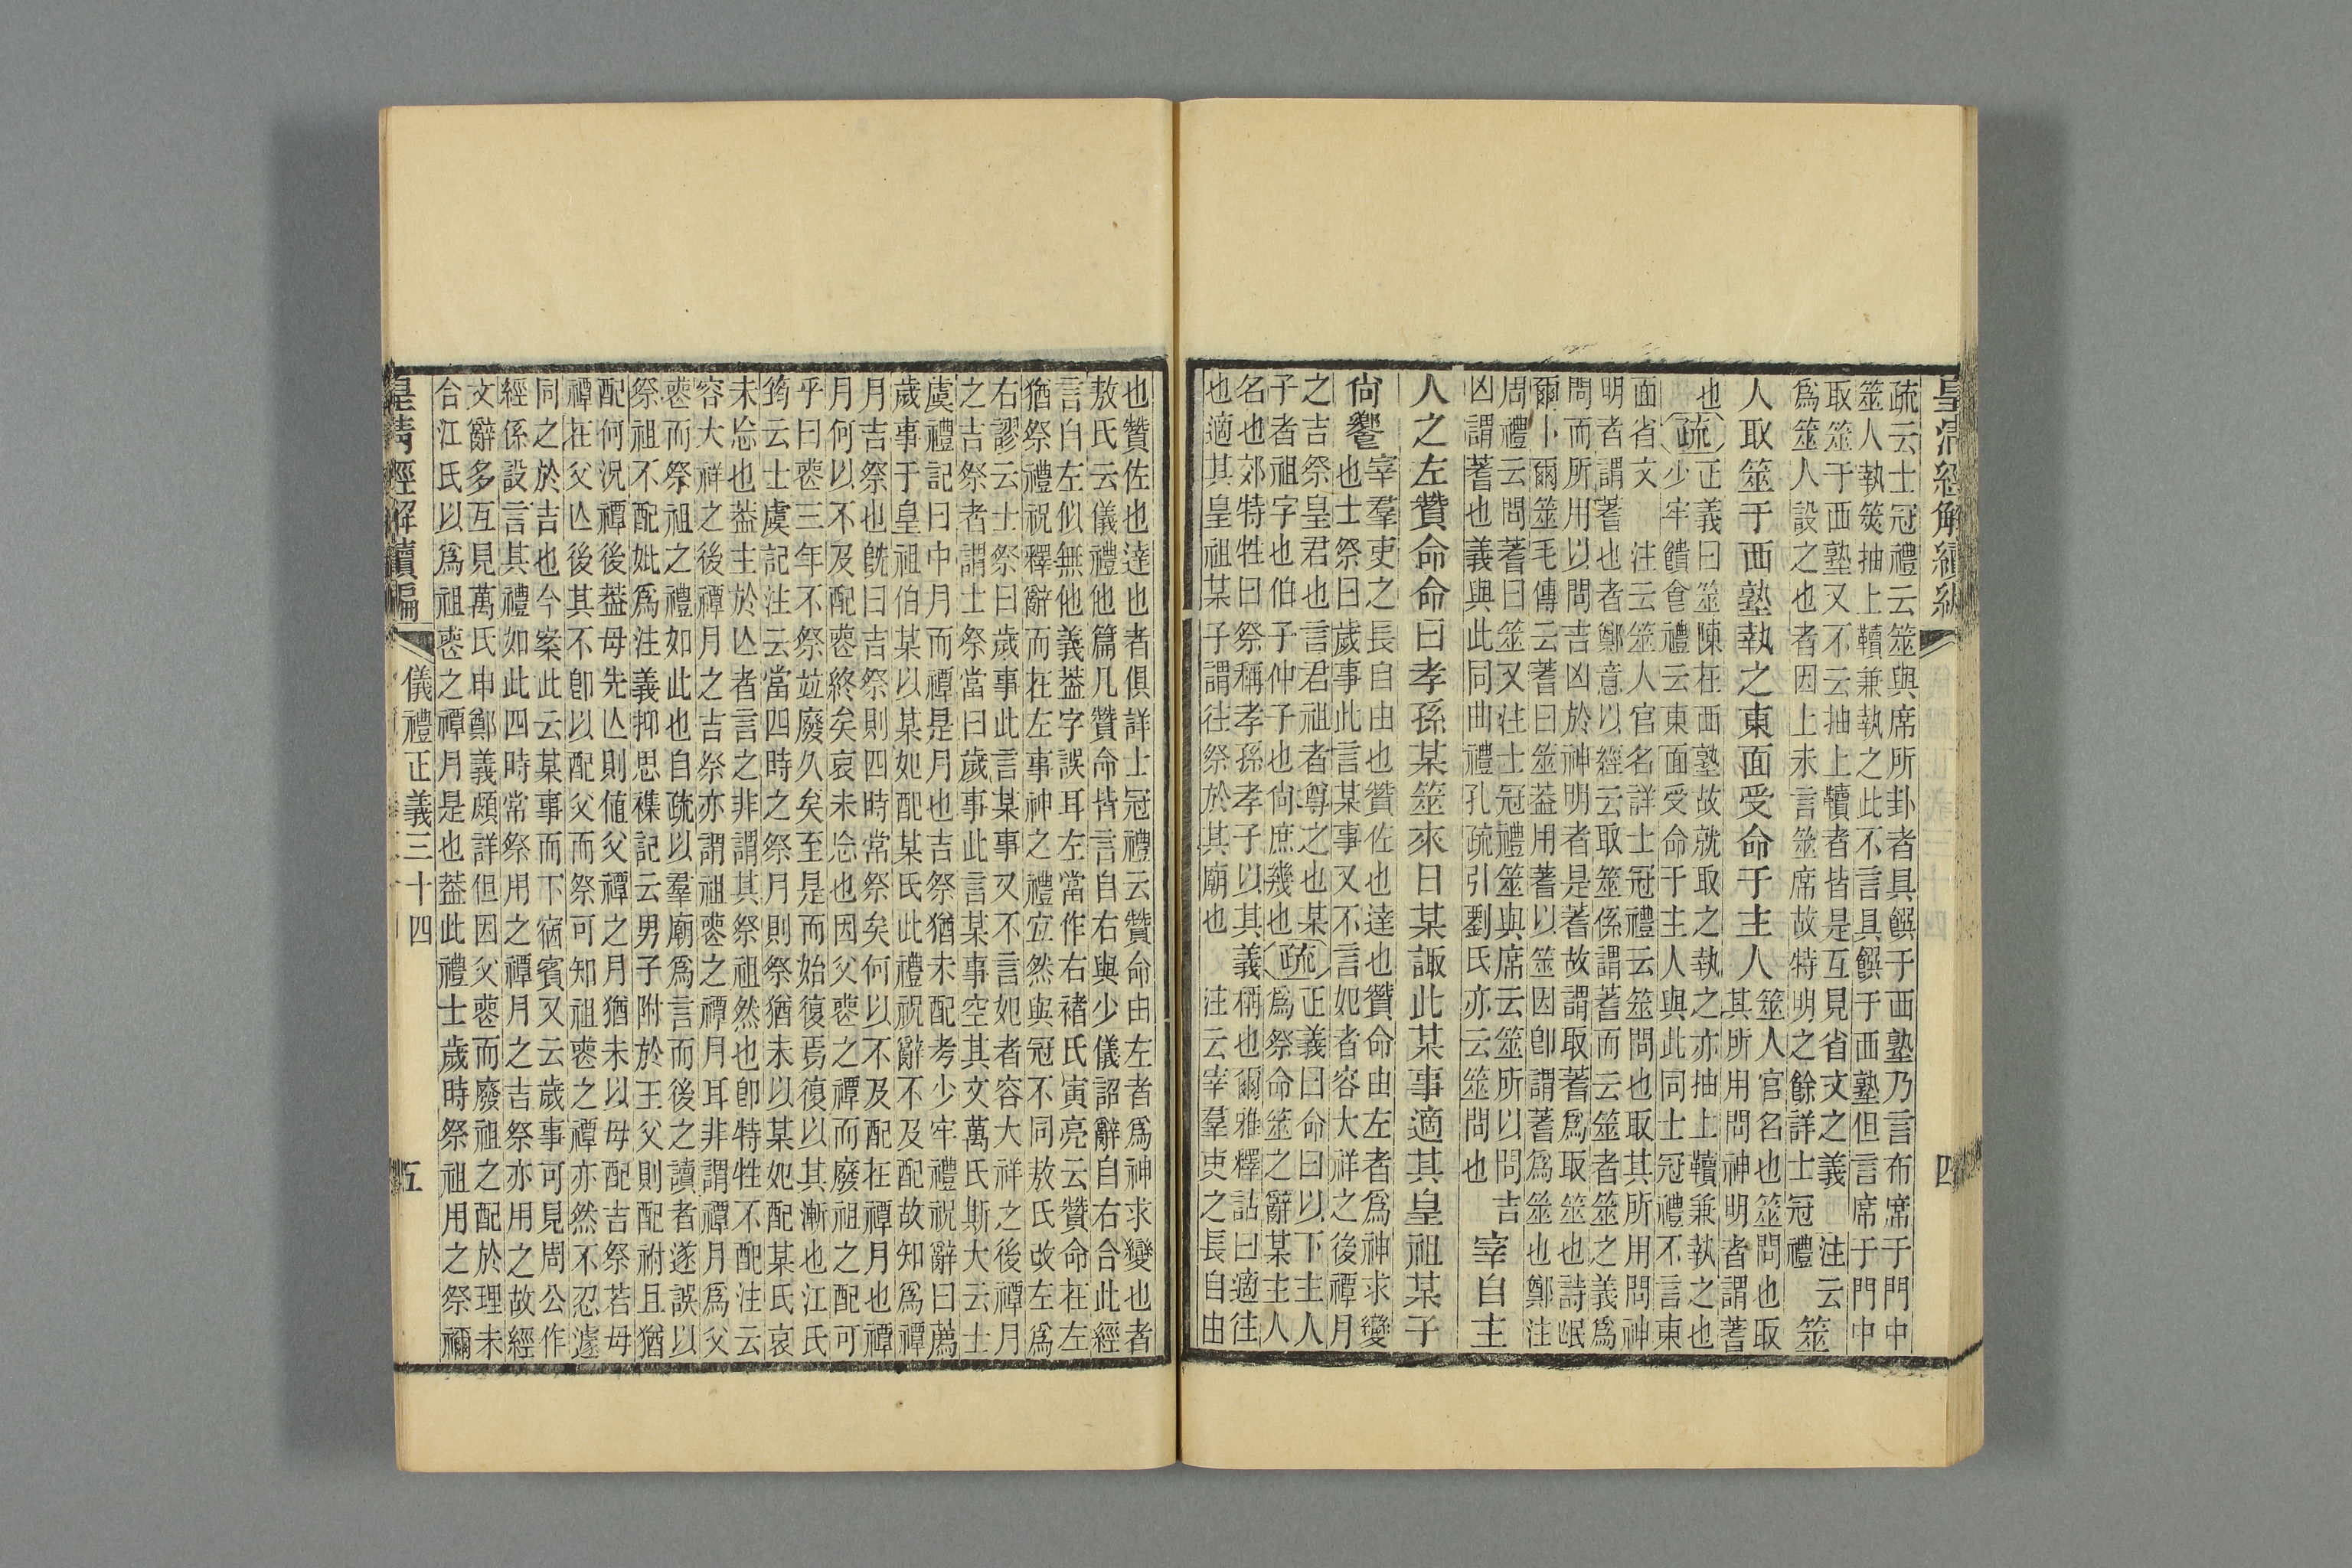 皇清經解續編
四
疏云士冠禮云筮與席所卦者具饌于西塾乃言布席于門中
筮人執筴抽上韇兼執之此不言具饌于西塾但言席于門中
取筮于西塾又不云抽上韇者皆是互見省文之義 注云
爲筮人設之也者因上未言筮席故特明之餘詳士冠禮 筮
人取筮于西塾執之東面受命于主人
筮人官名也筮問也取
其所用問神明者謂蓍
也
疏
正義曰筮陳在西塾故就取之執之亦抽上韇兼執之也
少牢饋食禮云東面受命于主人與此同士冠禮不言東
面省文 注云筮人官名詳士冠禮云筮問也取其所用問神
明者謂蓍也者鄭意以經云取筮係謂蓍而云筮者筮之義爲
問而所用以問吉凶於神明者是蓍故謂取蓍爲取筮也詩氓
爾卜爾筮毛傳云蓍曰筮葢用蓍以筮因卽謂蓍爲筮也鄭注
周禮云問蓍曰筮又注士冠禮筮與席云筮所以問吉
凶謂蓍也義與此同曲禮孔疏引劉氏亦云筮問也
宰自主
人之左贊命命曰孝孫某筮來日某諏此某事適其皇祖某子
尙饗
宰羣吏之長自由也贊佐也達也贊命由左者爲神求變
也士祭曰歲事此言某事又不言妃者容大祥之後禫月
之吉祭皇君也言君祖者尊之也某
子者祖字也伯子仲子也尙庶幾也
疏
正義曰命曰以下主人
爲祭命筮之辭某主人
名也郊特牲曰祭稱孝孫孝子以其義稱也爾雅釋詁曰適往
也適其皇祖某子謂往祭於其廟也 注云宰羣吏之長自由
也贊佐也達也者俱詳士冠禮云贊命由左者爲神求變也者
敖氏云儀禮他篇凡贊命皆言自右與少儀詔辭自右合此經
言自左似無他義葢字誤耳左當作右褚氏寅亮云贊命在左
猶祭禮祝釋辭而在左事神之禮宜然與冠不同敖氏改左爲
右謬云士祭曰歲事此言某事又不言妃者容大祥之後禫月
之吉祭者謂士祭當曰歲事此言某事空其文萬氏斯大云士
虞禮記曰中月而禫是月也吉祭猶未配考少牢禮祝辭曰薦
歲事于皇祖伯某以某妃配某氏此禮祝辭不及配故知爲禫
月吉祭也旣曰吉祭則四時常祭矣何以不及配在禫月也禫
月何以不及配喪終矣哀未忘也因父喪之禫而廢祖之配可
乎曰喪三年不祭竝廢久矣至是而始復焉復以其漸也江氏
筠云士虞記注云當四時之祭月則祭猶未以某妃配某氏哀
未忘也葢主於亾者言之非謂其祭祖然也卽特牲不配注云
容大祥之後禫月之吉祭亦謂祖喪之禫月耳非謂禫月爲父
喪而祭祖之禮如此也自疏以羣廟爲言而後之讀者遂誤以
祭祖不配妣爲注義抑思襍記云男子附於王父則配祔且猶
配何況禫後葢母先亾則値父禫之月猶未以母配吉祭若母
禫在父亾後其不卽以配父而祭可知祖喪之禫亦然不忍遽
同之於吉也今案此云某事而下宿賓又云歲事可見周公作
經係設言其禮如此四時常祭用之禫月之吉祭亦用之故經
文辭多互見萬氏申鄭義頗詳但因父喪而廢祖之配於理未
合江氏以爲祖喪之禫月是也葢此禮士歲時祭祖用之祭禰
皇清經解續編
儀禮正義三十四
五